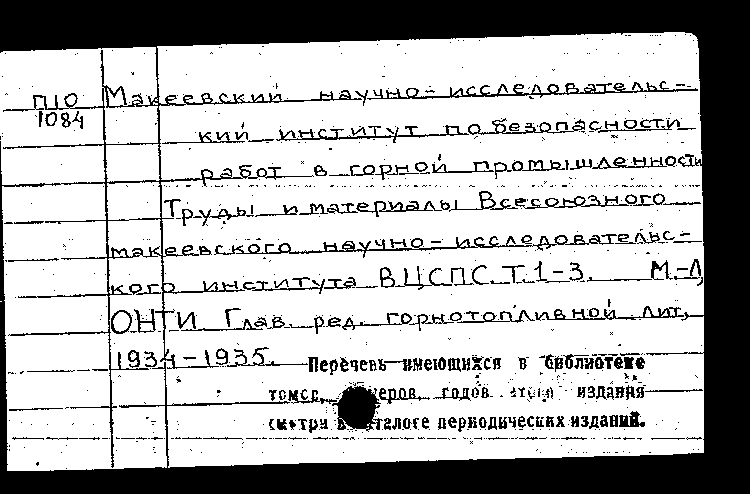 П10 Макеевский научно-исследовательс-
1084
кий институт по безопасности
работ в горной промышленности
Труды и материалы Всесоюзного
макеевского научно-исследовательс-
кого института ВЦСПС. Т.1-3. М.-Л,
ОНТИ Глав. ред. горнотопливной лит,
1934-1935. Перечень имеющихся в библиотеке
годов этого издания
смотри в каталоге периодических изданий.